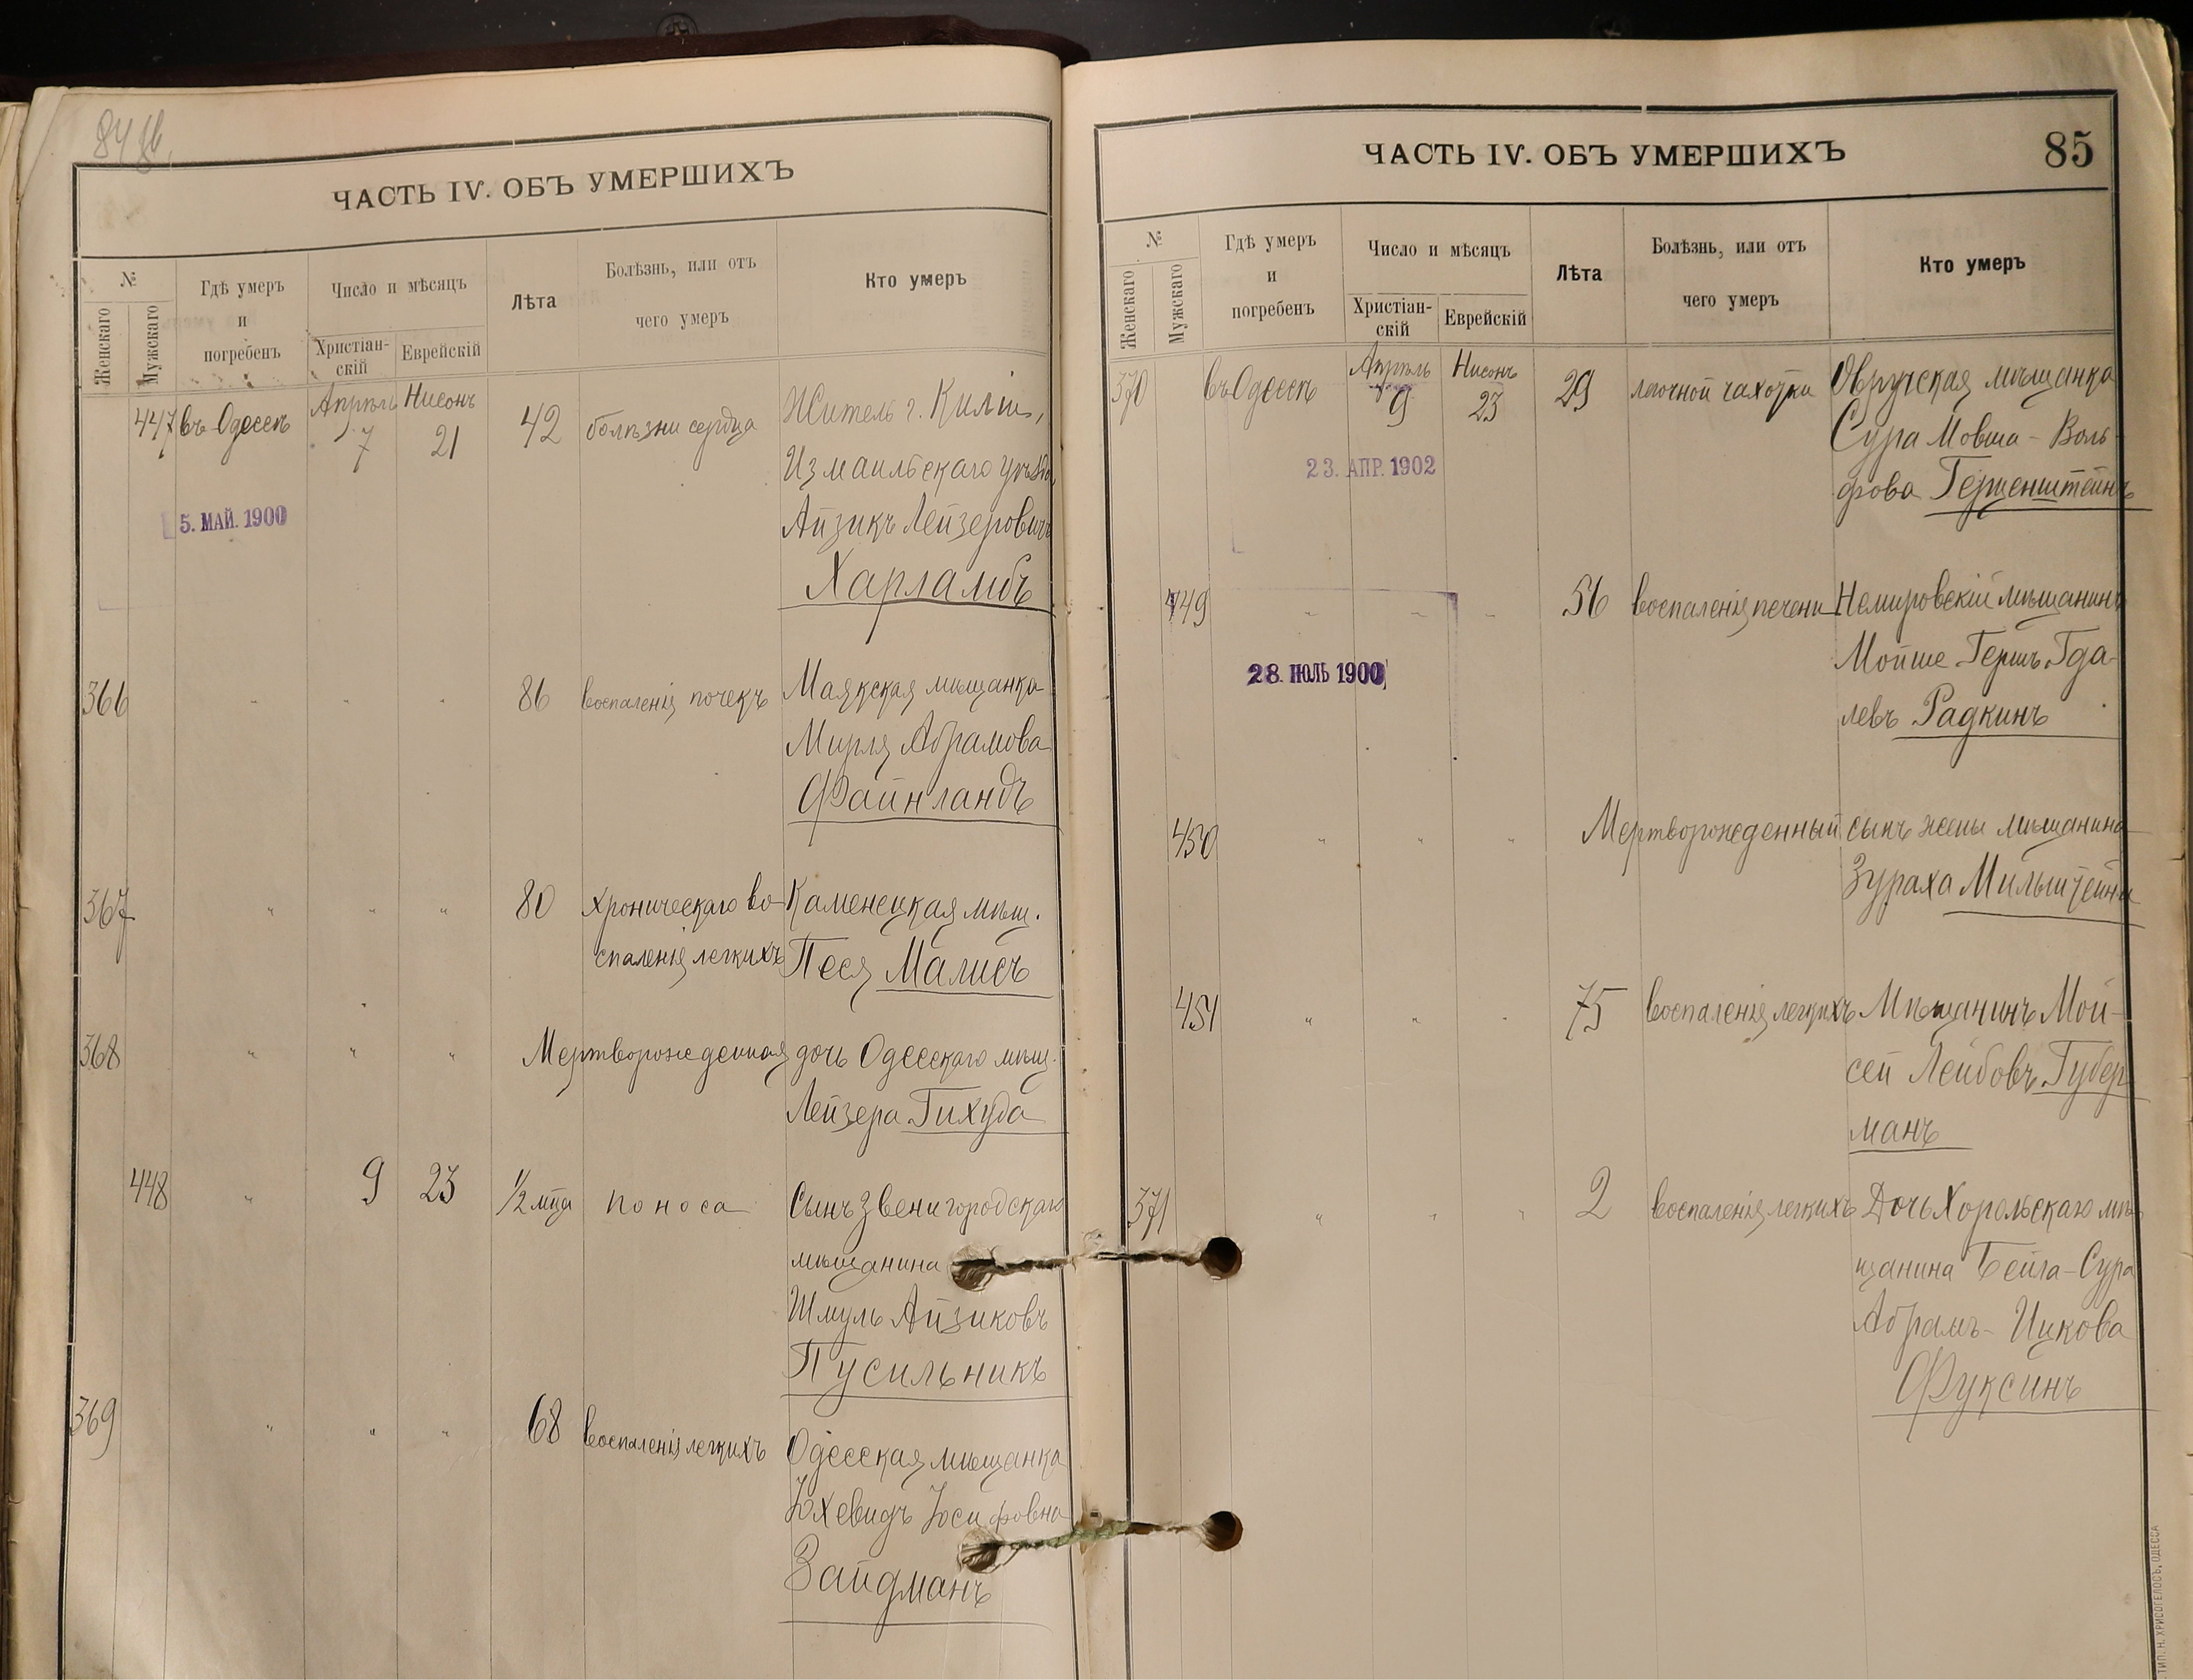 84 об.
ЧАСТЬ IV. ОБЪ УМЕРШИХЪ
№
Женскаго
Мужскаго
Гдѣ умеръ
и
погребенъ
Число и мѣсяцъ
Христіан-
скій
Еврейскій
Лѣта
Болѣзнь, или отъ
чего умеръ
Кто умеръ
447 въ Одессѣ Апрѣль 7 Нисонъ 21 42 болѣзни сердца Житель г. Киліи,
Измаильскаго уѣзда,
Айзикъ Лейзеровичъ
Харламбъ
5. МАЙ. 1900
366 " " " 86 воспаленія почекъ Маякская мѣщанка
Мирля Абрамова
Файнландъ
367 " " " 80 хроническаго во- Каменецкая мѣщ.
спаленія легкихъ Песя Малисъ
368 " " " Мертворожденная дочь Одесскаго мѣщ.
Лейзера Гихуда
448 " 9 23 1/2 мѣца поноса Сынъ Звенигородскаго
мѣщанина
Шмуль Айзиковъ
Пусильникъ
369 " " " 68 воспаленія легкихъ Одесская мѣщанка
Юхевидъ Іосифовна
Зайдманъ
ЧАСТЬ IV. ОБЪ УМЕРШИХЪ
85
№
Женскаго
Мужскаго
Гдѣ умеръ
и
погребенъ
Число и мѣсяцъ
Христіан-
скій
Еврейскій
Лѣта
Болѣзнь, или отъ
чего умеръ
Кто умеръ
370 въ Одессѣ Апрѣль 9 Нисонъ 23 29 легочной чахотки Овручская мѣщанка
Сура Мовша-Воль-
фова Герценштейнъ
23. АПР. 1902
449 " " " 56 воспаленія печени Немировскій мѣщанинъ
Мойше-Гершъ Гда-
левъ Радкинъ
28. ІЮЛЬ 1900
450 " " " Мертворожденный сынъ жены мѣщанина
Зураха Мильштейна
451 " " " 75 воспаленія легкихъ Мѣщанинъ Мой-
сей Лейбовъ Губер
манъ
371 " " " 2 воспаленія легкихъ Дочь Хорольскаго мѣ-
щанина Бейла-Сура
Абрамъ-Ицкова
Фуксинъ
ТИП. Н. ХРИСОГЕЛОСЪ, ОДЕССА